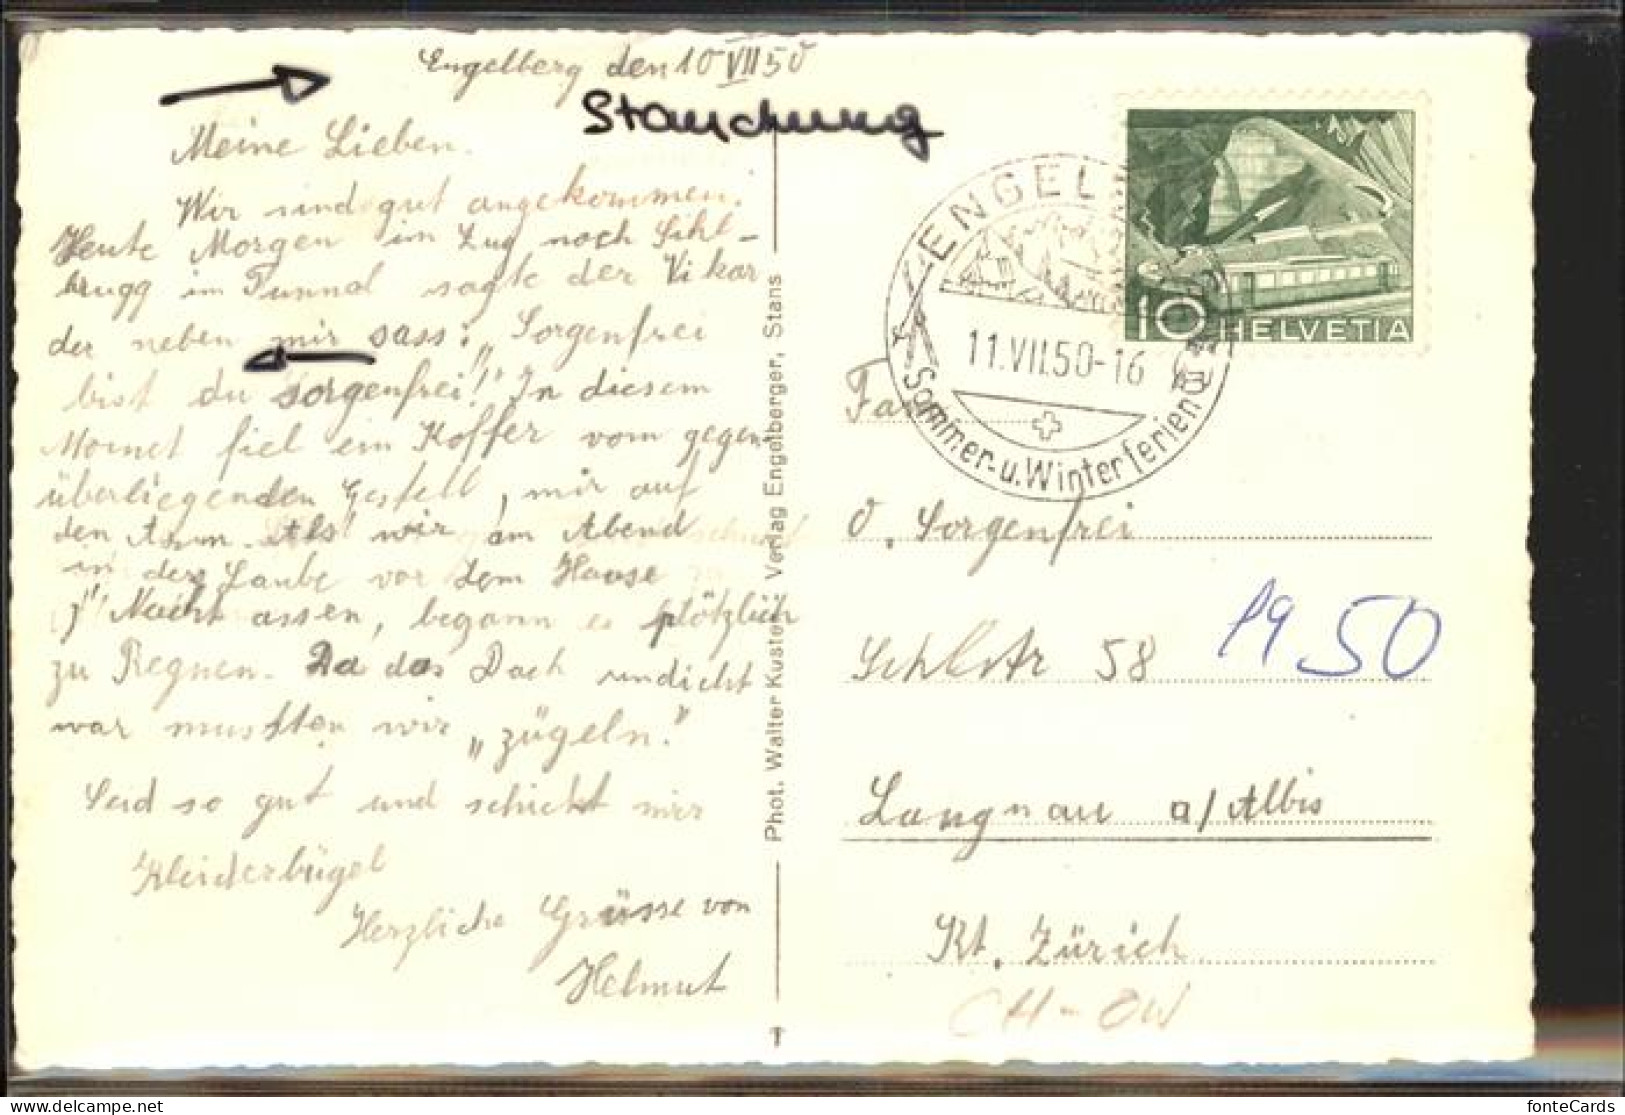 Engelberg den 10 VII 50
Stauchung
Meine Lieben.
Wir sind gut angekommen.
Heute Morgen im Zug nach Sihl-
brugg im Tunnel sagte der Vikar
der neben mir sass: „Sorgenfrei
bist du sorgenfrei!" In diesem
Moment fiel ein Koffer vom gegen-
überliegenden Gestell, mir auf
den Arm. Als wir am Abend
in der Laube vor dem Hause
z' Nacht assen, begann es plötzlich
zu Regnen. Da das Dach undicht
war mussten wir „zügeln."
Seid so gut und schickt mir
Kleiderbügel
Herzliche Grüsse von
Helmut
Phot. Walter Kuster, Verlag Engelberger, Stans
10 HELVETIA
ENGELBERG
11.VII.50-16
Sommer- u. Winterferien
Fam
O. Sorgenfrei
Sihlstr 58
50
Langnau a/Albis
Kt. Zürich
CH-OW
fonteCards